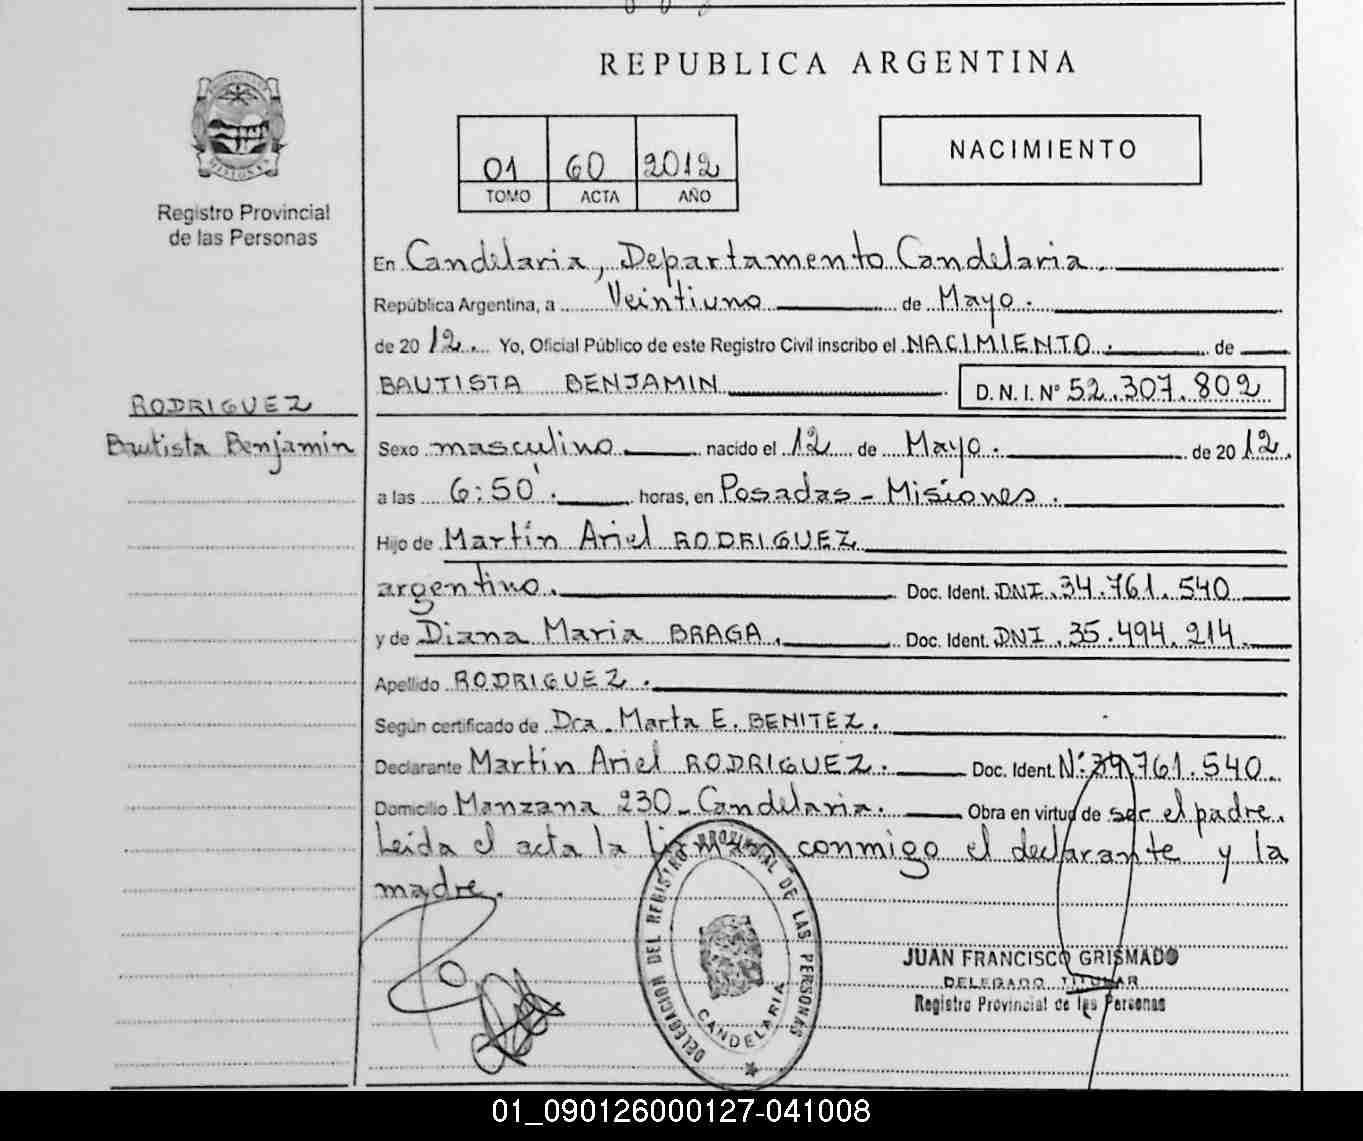 REPUBLICA ARGENTINA
NACIMIENTO
01 60 2012
TOMO ACTA AÑO
Registro Provincial
de las Personas
En Candelaria, Departamento Candelaria.
República Argentina, a Veintiuno de Mayo.
de 2012. Yo, Oficial Público de este Registro Civil inscribo el NACIMIENTO. de
BAUTISTA BENJAMIN D.N.I. Nº 52.307.802
RODRIGUEZ
Bautista Benjamin
Sexo masculino nacido el 12 de Mayo. de 2012.
a las 6:50'. horas, en Posadas - Misiones.
Hijo de Martín Ariel RODRIGUEZ
argentino. Doc. Ident. DNI.34.761.540
y de Diana Maria BRAGA. Doc. Ident. DNI.35.494.214.
Apellido RODRIGUEZ.
Según certificado de Dra. Marta E. BENITEZ.
Declarante Martin Ariel RODRIGUEZ. Doc. Ident. Nº 761.540.
Domicilio Manzana 230 - Candelaria. Obra en virtud de ser el padre.
Leida el acta la conmigo el declarante y la
madre.
DELEGACION DEL REGISTRO PROVINCIAL DE LAS PERSONAS
CANDELARIA
JUAN FRANCISCO GRISMADO
DELEGADO TITULAR
Registro Provincial de las Personas
01_090126000127-041008